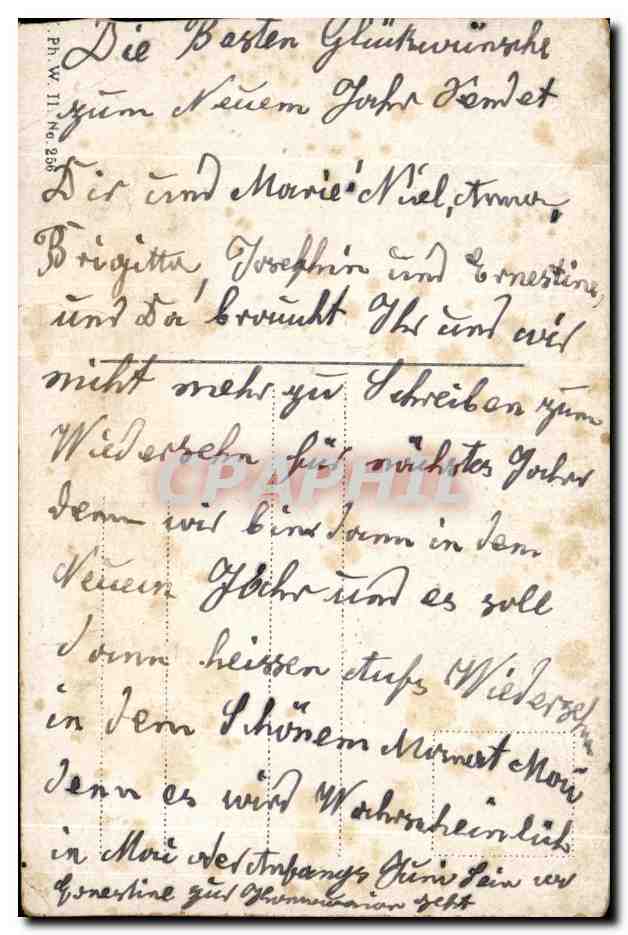 Die Besten Glückwünsche
zum Neuem Jahr Sendet
Dir und Marie Niel, Anna,
Brigitta, Josephin und Ernestine,
und Da braucht Ihr und wir
nicht mehr zu Schreiben zum
Wiedersehn für nächstes Jahr
denn wir sind dann in dem
Neuem Jahr und es soll
dann heissen Aufs Wiedersehn
in dem Schönem Monat Mai
denn es wird Wahrscheinlich
in Mai oder Anfangs Juni Sein wo
Ernestine zur Kommunion geht
Ph. W. II. No. 256
CPAPHIL